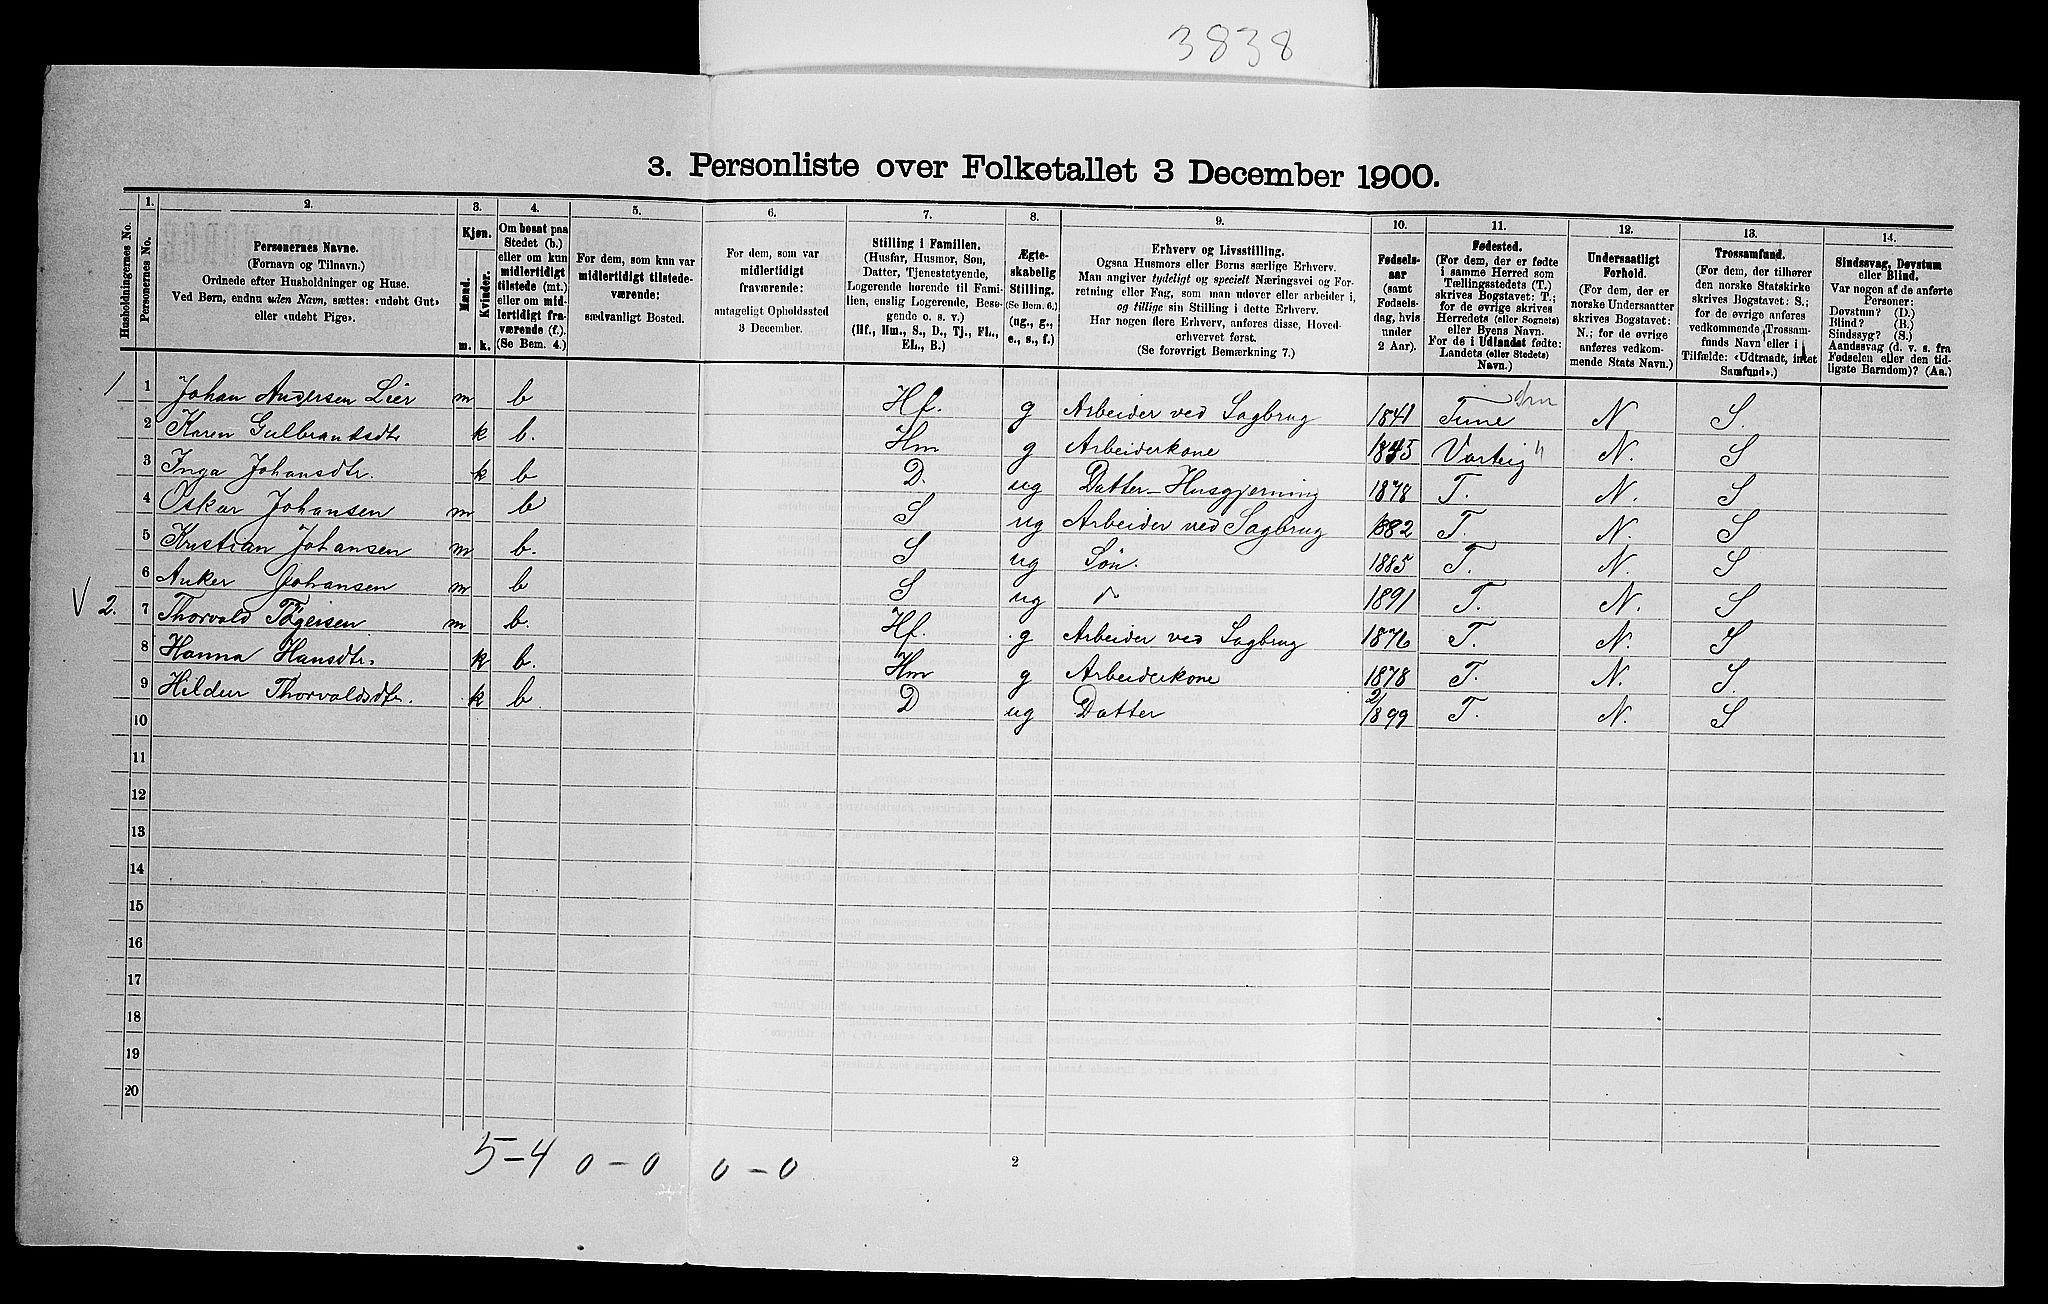 3838
3. Personliste over Folketallet 3 December 1900.
Husholdningernes No.
1. Personernes No.
2. Personernes Navne.
(Fornavn og Tilnavn.)
Ordnede efter Husholdninger og Huse.
Ved Børn, endnu uden Navn, sættes: «udøbt Gut»
eller «udøbt Pige».
3. Kjøn.
Mænd. m.
Kvinder. k.
4. Om bosat paa
Stedet (b.)
eller om kun
midlertidigt
tilstede (mt.)
eller om mid-
lertidigt fra-
værende (f.).
(Se Bem. 4.)
5. For dem, som kun var
midlertidigt tilstede-
værende:
sædvanligt Bosted.
6. For dem, som var
midlertidigt
fraværende:
antageligt Opholdssted
3 December.
7. Stilling i Familien.
(Husfar, Husmor, Søn,
Datter, Tjenestetyende,
Logerende hørende til Fami-
lien, enslig Logerende, Besø-
gende o. s. v.)
(Hf., Hm., S., D., Tj., FL.,
EL., B.)
8. Ægte-
skabelig
Stilling.
(Se Bem. 6.)
(ug., g.,
e., s., f.)
9. Erhverv og Livsstilling.
Ogsaa Husmors eller Børns særlige Erhverv.
Man angiver tydeligt og specielt Næringsvei og For-
retning eller Fag, som man udøver eller arbeider i,
og tillige sin Stilling i dette Erhverv.
Har nogen flere Erhverv, anføres disse, Hoved-
erhvervet først.
(Se forøvrigt Bemærkning 7.)
10. Fødsels-
aar
(samt
Fødsels-
dag, hvis
under
2 Aar).
11. Fødested.
(For dem, der er fødte
i samme Herred som
Tællingsstedets (T.)
skrives Bogstavet: T.;
for de øvrige skrives
Herredets (eller Sognets)
eller Byens Navn.
For de i Udlandet fødte:
Landets (eller Stedets)
Navn.)
12. Undersaatligt
Forhold.
(For dem, der er
norske Undersaatter
skrives Bogstavet:
N.; for de øvrige
anføres vedkom-
mende Stats Navn.)
13. Trossamfund.
(For dem, der tilhører
den norske Statskirke
skrives Bogstavet: S.;
for de øvrige anføres
vedkommende Trossam-
funds Navn eller i
Tilfælde: «Udtraadt, intet
Samfund».)
14. Sindssvag, Døvstum
eller Blind.
Var nogen af de anførte
Personer:
Døvstum? (D.)
Blind? (B.)
Sindssyg? (S.)
Aandssvag (d. v. s. fra
Fødselen eller den tid-
ligste Barndom)? (Aa.)
1 1 Johan Andersen Lier m b Hf. g Arbeider ved Sagbrug 1841 Tune N. S.
2 Karen Gulbrandsdtr k b. Hm g Arbeiderkone 1845 Varteig " N. S
3 Inga Johansdtr. k b D. ug Datter - Husgjerning 1878 T. N. S
4 Oskar Johansen m b S ug Arbeider ved Sagbrug 1882 T. N. S
5 Kristian Johansen m b. S ug Søn. 1885 T. N. S
6 Anker Johansen m b S ug 1891 T. N. S
V 2. 7 Thorvald m b. Hf. g Arbeider ved Sagbrug 1876 T. N. S
8 Hanna Hansdtr. k b. Hm g Arbeiderkone 1878 T. N. S.
9 Hildur Thorvaldsdtr. k b D ug Datter 2/1899 T. N. S
10
11
12
13
14
15
16
17
18
19
20
5-4 0-0 0-0
2